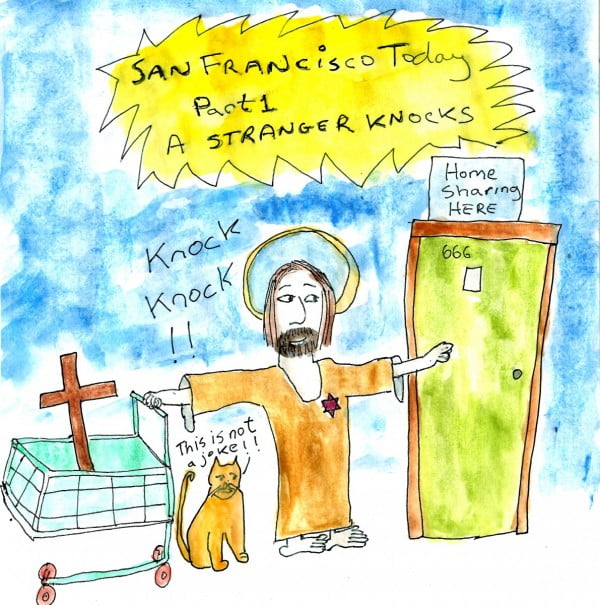 SAN FRANCISCO Today
Part 1
A STRANGER KNOCKS
Home
Sharing
HERE
666
Knock
Knock
!!
This is not
a joke!!